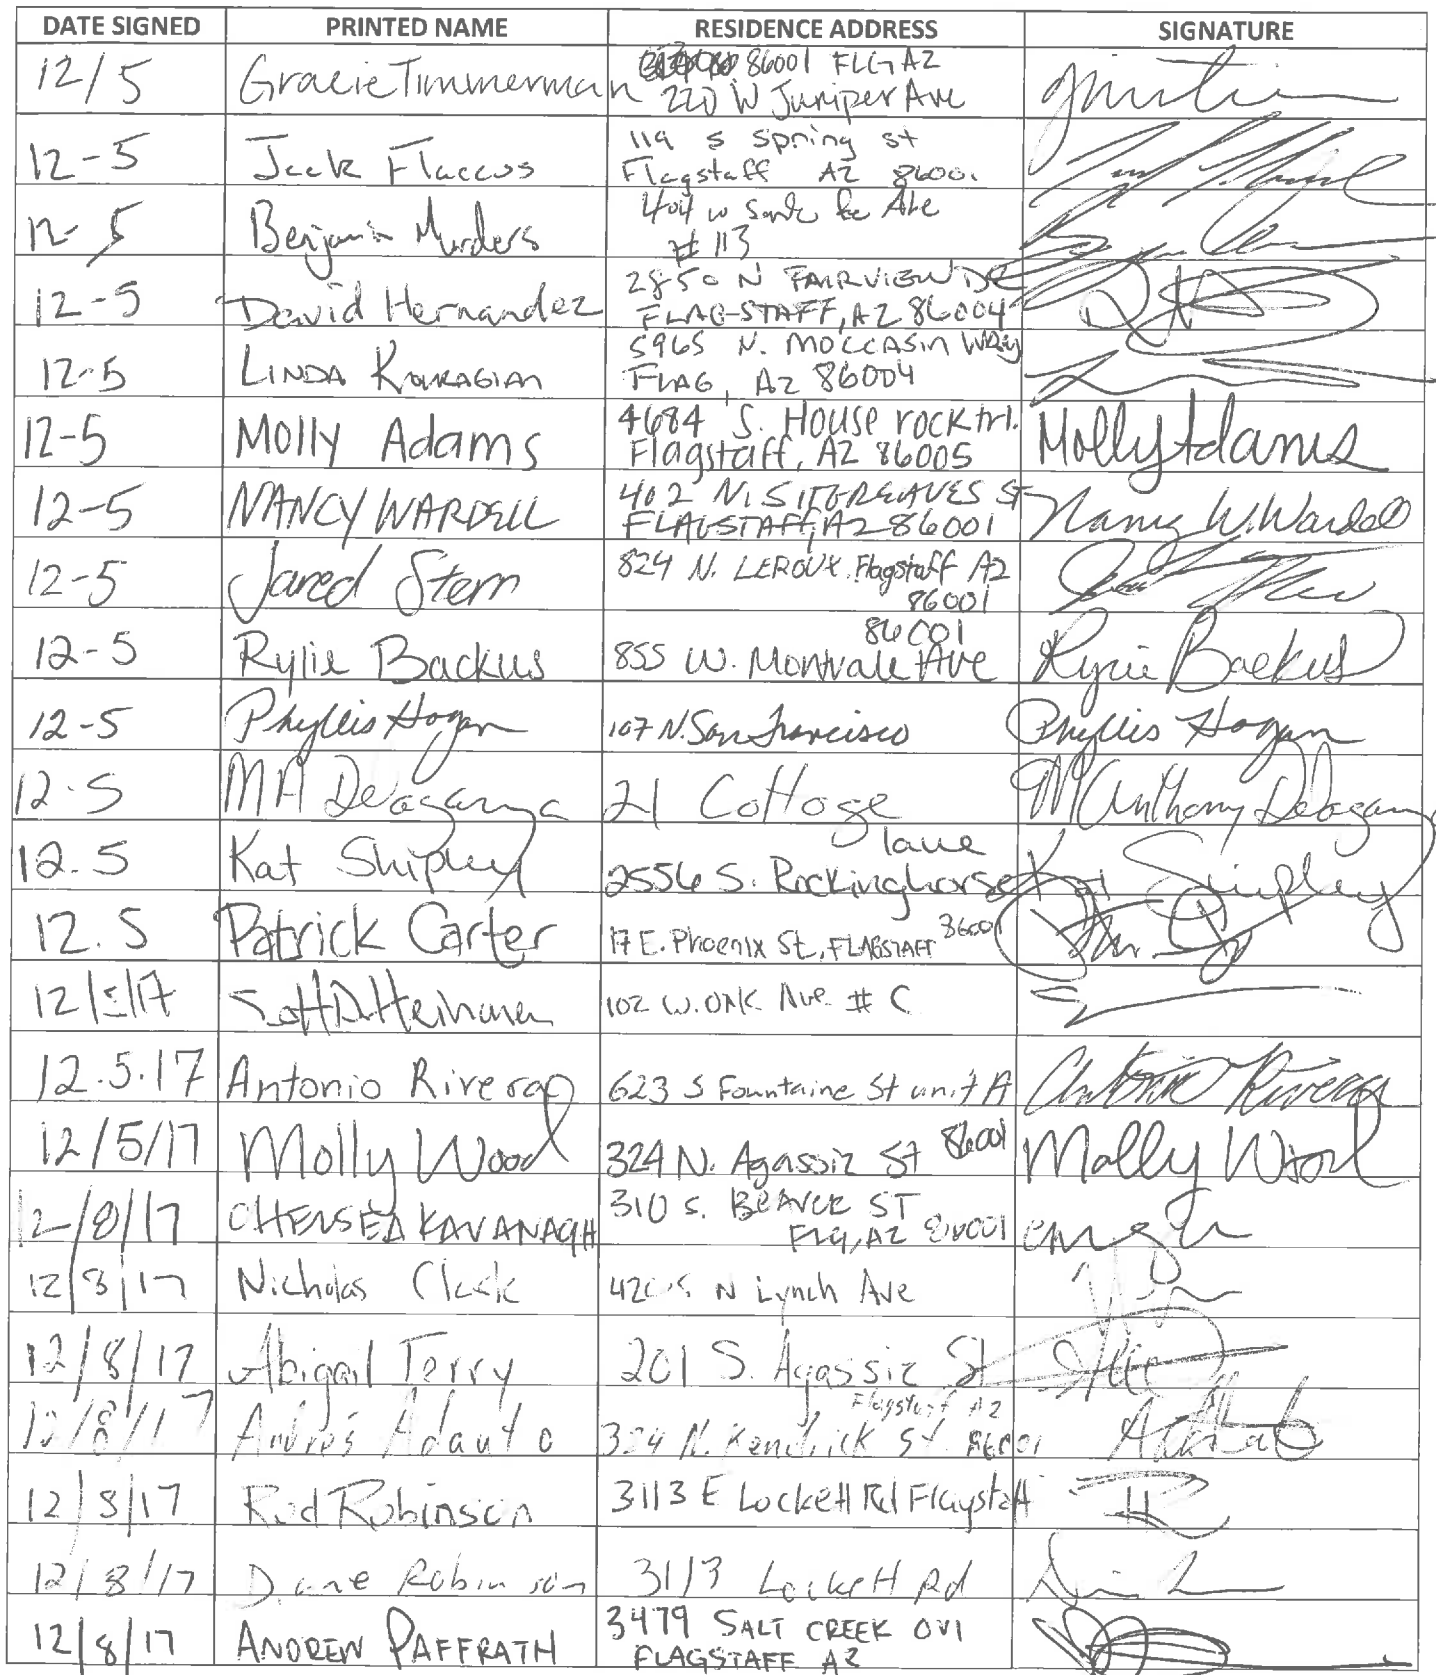 DATE SIGNED PRINTED NAME RESIDENCE ADDRESS SIGNATURE
12/5 Gracie Timmerman 86001 FLG AZ
220 W Juniper Ave
12-5 Jack Flaccus 119 S Spring St
Flagstaff AZ 86001
12-5 Benjamin Murders 404 W Santa Fe Ave
#113
12-5 David Hernandez 2850 N FAIRVIEW DR
FLAGSTAFF, AZ 86004
12-5 LINDA 5965 N. MOCCASIN Way
FLAG, AZ 86004
12-5 Molly Adams 4684 S. House rock trl. Molly Adams
Flagstaff, AZ 86005
12-5 NANCY WARDELL 402 N. SITGREAVES ST Nancy W. Wardell
FLAGSTAFF, AZ 86001
12-5 Jared Stern 824 N. LEROUX Flagstaff AZ
86001
86001
12-5 Rylie Backus 855 W. Montvale Ave Rylie Backus
12-5 Phyllis Hogan 107 N. San Francisco Phyllis Hogan
12-5 MA 21 Cottage M Anthony
lane
12.5 Kat Shipley 2556 S. Rockinghorse Kat Shipley
12.5 Patrick Carter 17 E. Phoenix St, FLAGSTAFF 86001
12/5/17 102 W. OAK Ave # C
12.5.17 Antonio Rivera 623 S Fountaine St unit A Antonio Rivera
12/5/17 Molly Wood 324 N. Agassiz St 86001 Molly Wood
12/8/17 CHELSEA KAVANAGH 310 S. BEAVER ST
FLG, AZ 86001
12/8/17 Nicholas Clark N Lynch Ave
12/8/17 Abigail Terry 201 S. Agassiz St
Flagstaff AZ
12/8/17 Andrés Adauto 324 N. Kendrick St. 86001
12/8/17 Rod Robinson 3113 E Lockett Rd Flagstaff
12/8/17 Diane Robinson 3113 Lockett Rd
12/8/17 ANDREW PAFFRATH 3479 SALT CREEK
FLAGSTAFF AZ